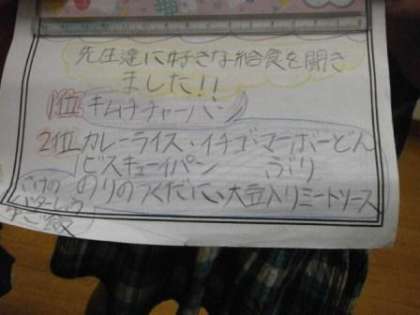 先生達に好きな給食を聞き
ました!!
1位 キムチチャーハン
2位 カレーライス・イチゴ マーボーどん
ビスキューイパン ぶり
のりのつくだに、大豆入りミートソース